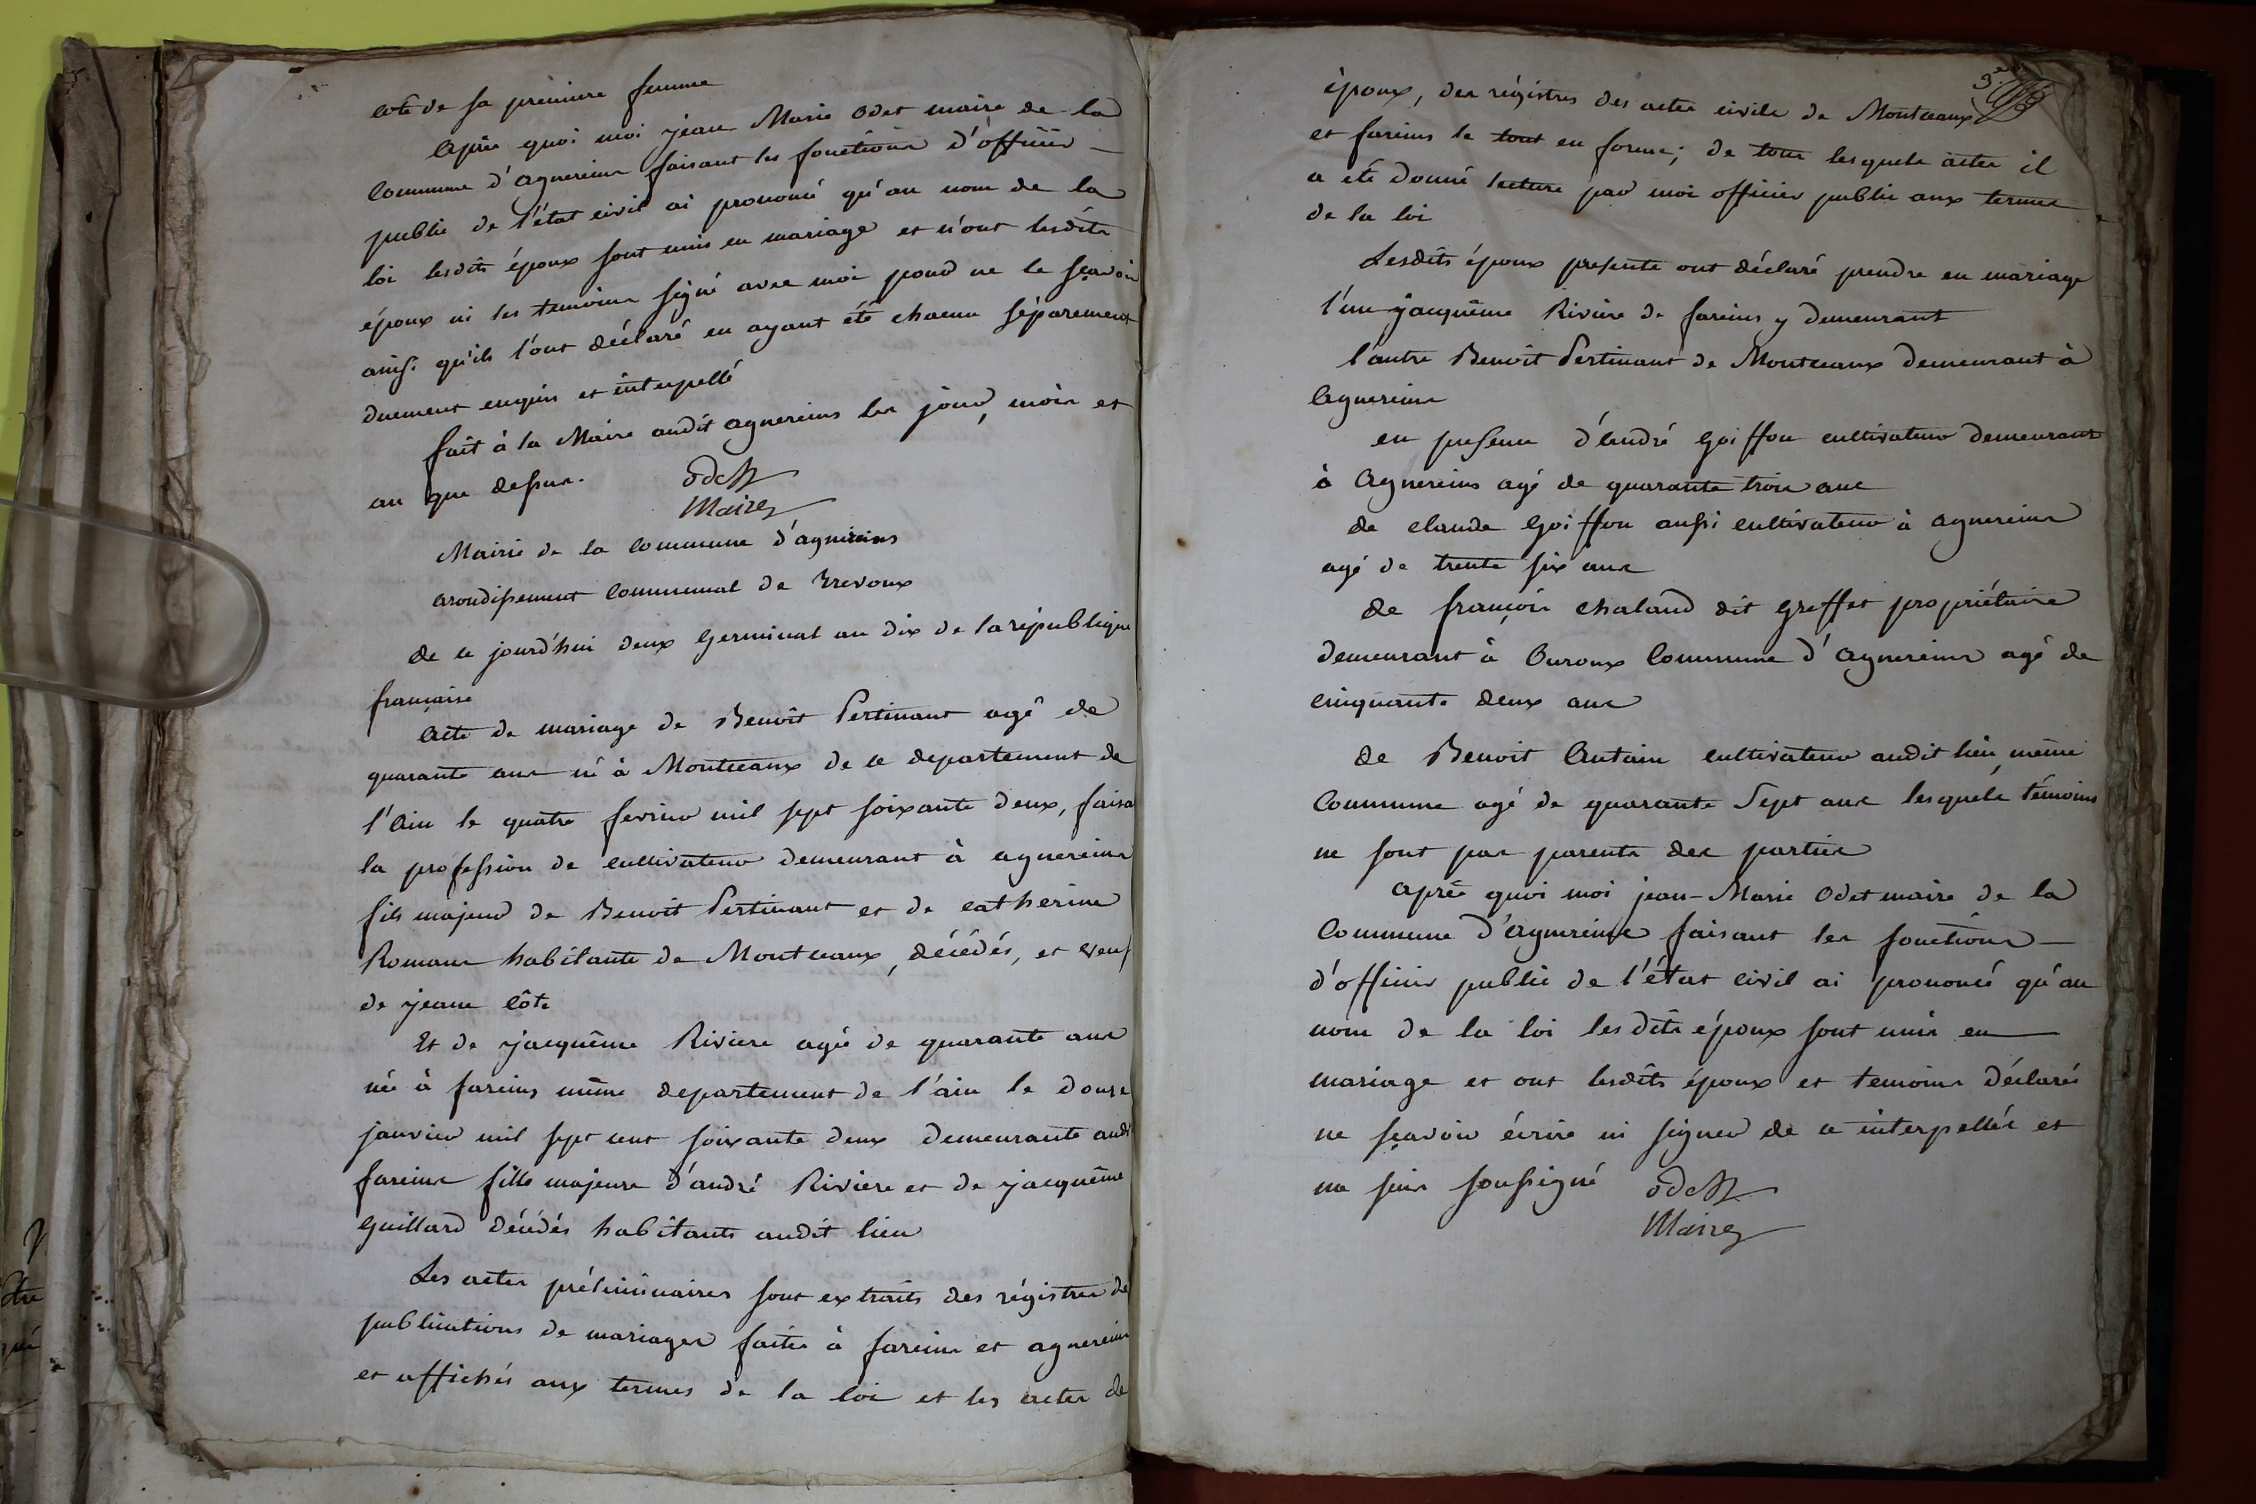 coté de sa premiere femme
Après quoi moi jean Marie Odet maire de la
commune d'agnereins faisant les fonctions d'officier
public de l'état civil ai prononcé qu'au nom de la
loi lesdits époux sont unis en mariage et n'ont lesdits
époux ni les temoins signé avec moi pour ne le sçavoir
ainsi qu'ils l'ont déclaré en ayant été chacun séparement
duement enquis et interpellé
fait à la Mairie audit agnereins les jour, mois et
an que dessus.
Odet
Maire
Mairie de la Commune d'agnereins
arondissement Communal de Trevoux
de ce jourd'hui deux Germinal an dix de la république
française
Acte de mariage de Benoît Pertinant agé de
quarante ans né à Montceaux de ce departement de
l'Ain le quatre fevrier mil sept soixante deux, faisa
la profession de cultivateur demeurant à agnereins
fils majeur de Benoît Pertinant et de catherine
Romans habitants de Montceaux, décédés, et veuf
de jeanne Côte
Et de jacquême Riviere agée de quarante ans
née à fareins même departement de l'ain le douze
janvier mil sept cent soixante deux demeurante audit
fareins fille majeure d'andré Riviere et de jacquême
Guillard décédés habitants audit lieu
Les actes préliminaires sont extraits des régistres de
publications de mariages faites à fareins et agnereins
et affichés aux termes de la loi et les actes de
3e
époux, des régistres des actes civils de Montceaux
et fareins le tout en forme; de tous lesquels actes il
a été donné lecture par moi officier public aux termes
de la loi
Lesdits époux presents ont déclaré prendre en mariage
l'un jacquême Riviere de fareins y demeurant
l'autre Benoît Pertinant de Montceaux demeurant à
Agnereins
en presence d'André Goiffon cultivateur demeurant
à Agnereins agé de quarante trois ans
de claude Goiffon aussi cultivateur à agnereins
agé de trente six ans
de françois chaland dit Greffet propriétaire
demeurant à Ouroux Commune d'agnereins agé de
cinquante deux ans
de Benoit Antoin cultivateur audit lieu, même
Commune agé de quarante Sept ans lesquels témoins
ne sont pas parents des parties
Après quoi moi jean-Marie Odet maire de la
Commune d'Agnereins faisant les fonctions
d'officier public de l'état civil ai prononcé qu'au
nom de la loi lesdits époux sont unis en
mariage et ont lesdits époux et temoins déclarés
ne sçavoir écrire ni signer de ce interpellés et
me suis soussigné
Odet
Maire